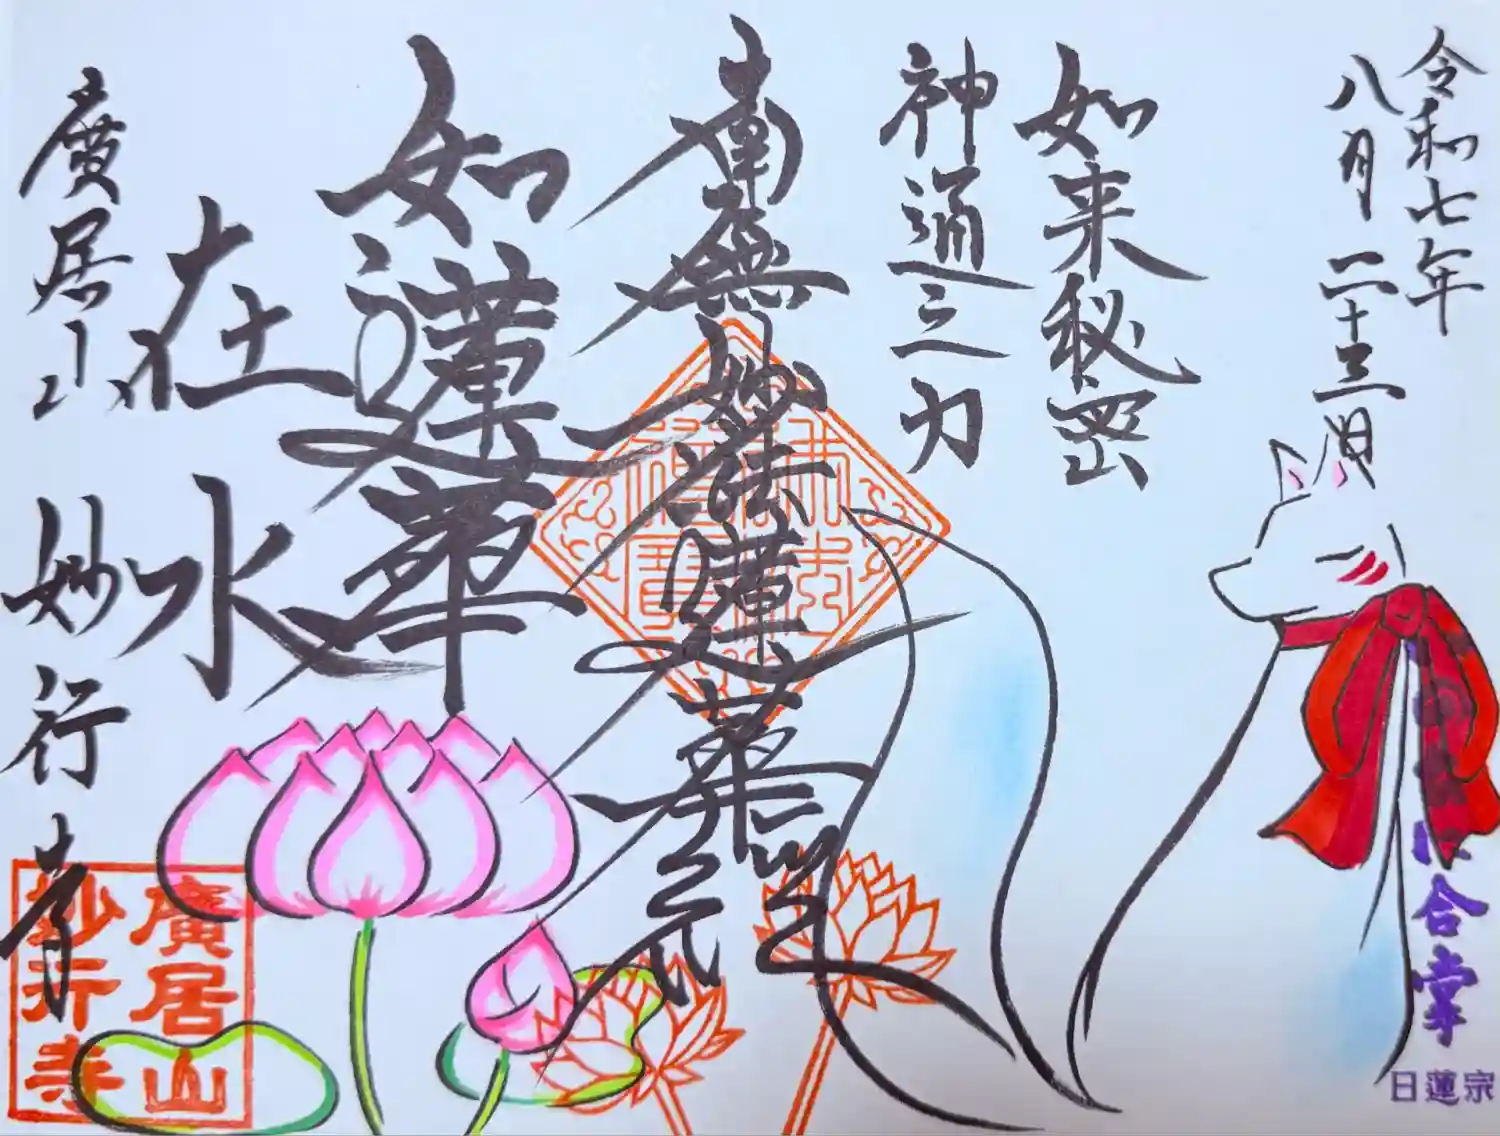 令和七年
八月二十三日
如来秘密
神通之力
南無妙法蓮華経
如蓮華
在水
廣居山
妙行寺
廣居山
妙行寺
合掌
日蓮宗